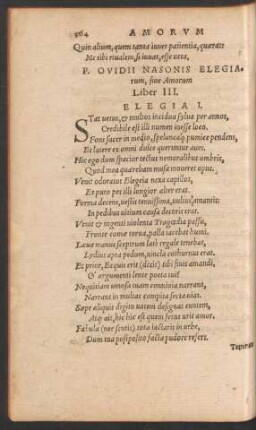 364 AMORVM
Quin alium, quem tanta iuuet patientia, quæras:
Me tibi riualem, si iuuat, esse veta.
P. OVIDII NASONIS ELEGIA-
rum, siue Amorum
Liber III.
ELEGIA I.
STat vetus, & multos incædua sylua per annos,
Credibile est illi numen inesse loco.
Fons sacer in medio, speluncaq; pumice pendens,
Et latere ex omni dulce queruntur aues.
Hic ego dum spacior tectus nemoralibus umbris,
Quod mea quærebam musa moueret opus.
Venit odoratos Elegeia nexa capillos,
Et puto pes illi longior alter erat.
Forma decens, vestis tenuissima, vultus amantis:
In pedibus vitium causa decoris erat.
Venit & ingenti violenta Tragœdia passu,
Fronte comæ torua, palla iacebat humi.
Læua manus sceptrum latè regale tenebat,
Lydius apta pedum, vincla cothurnus erat.
Et prior, Ecquis erit (dixit) tibi finis amandi,
O' argumenti lente poëta tui?
Nequitiam vinosa tuam conuiuia narrant,
Narrant in multas compita secta vias.
Sæpe aliquis digito vatem designat euntem,
Atq; ait, hic hic est quem ferus urit amor.
Fabula (nec sentis) tota iactaris in urbe,
Dum tua præposito facta pudore refers.